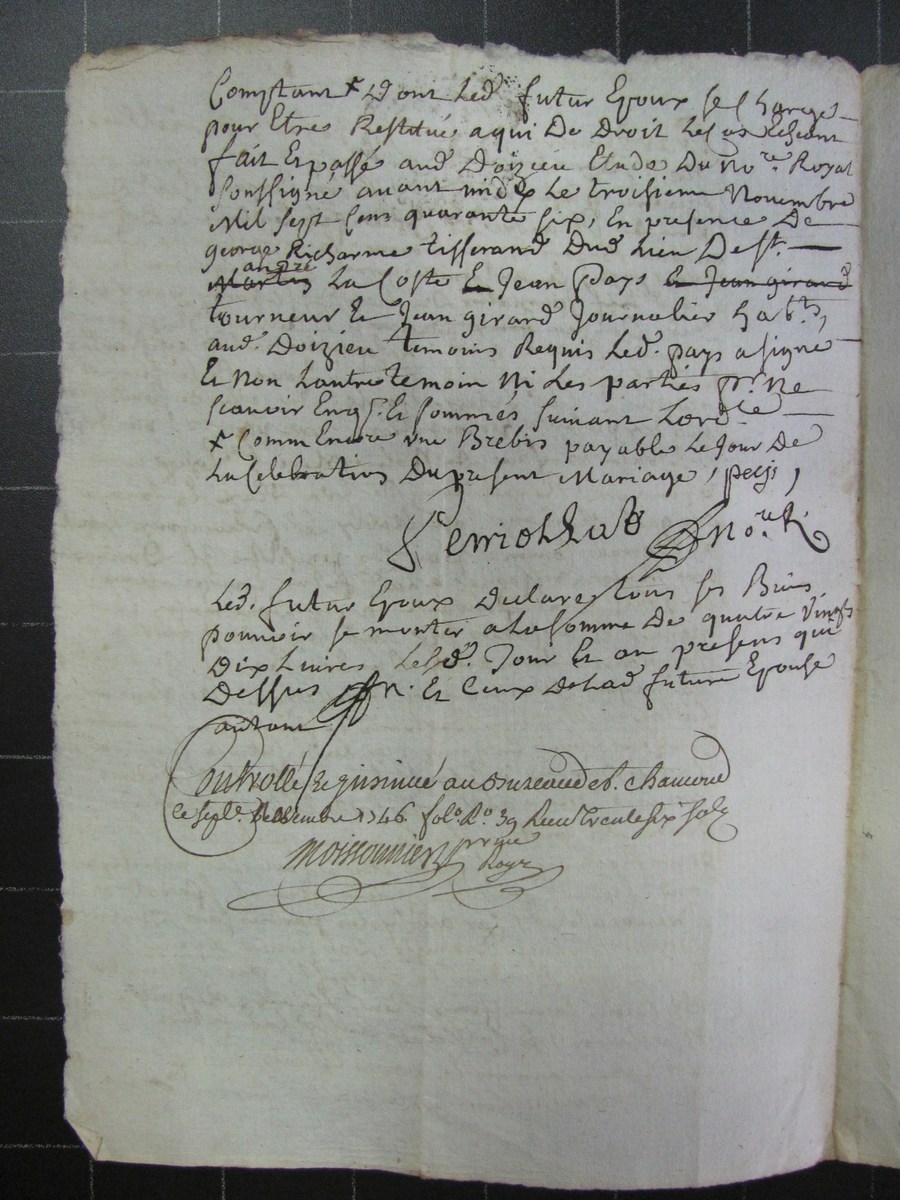 Comptant + Dont Led. futur Epoux se Charge
pour Etre Restitué a qui De Droit le cas Echeant
fait Et passé aud. Doizieu Etude Du Nore. Royal
soussigné avant midy Le troisieme Novembre
Mil sept Cens quarante six, En presence De
george Richarme tisserand Dud. Lieu De st.
Martin andré La Coste Et Jean pays Et Jean girard
tourneur Et Jean girard Journalier habts,
aud. Doizieu temoins Requis Led. pays a signé
Et Non Lautre temoin Ni Les parties pr. Ne
scavoir Enqs. Et sommés suivant Lordce
+ Comm Encore une Brebis payable Le Jour De
La Celebration Du present Mariage, pays,
nore. R.
Led. futur Epoux Declare tous ses Biens
pouvoir se monter a La somme De quatre vingts
Dix Livres Lesd. Jour Et an presens que
Dessus Et Ceux De Lad. future Epouse
autant
Controllé et insinué au Bureau de st. chamond
le septe. 1746 folo. Ro. 39 Recu trente six sols
moissonnier